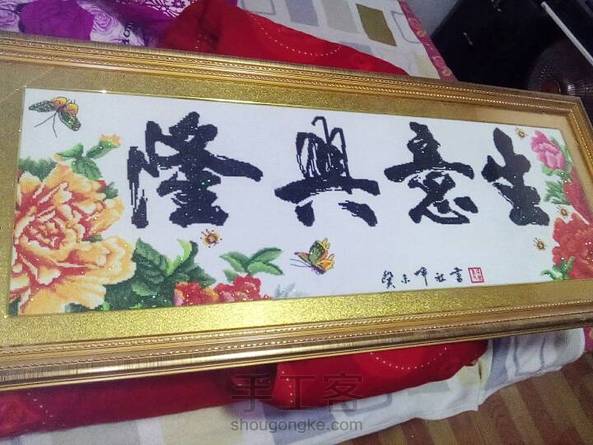 生意興隆
癸未 書
手工客
shougongke.com